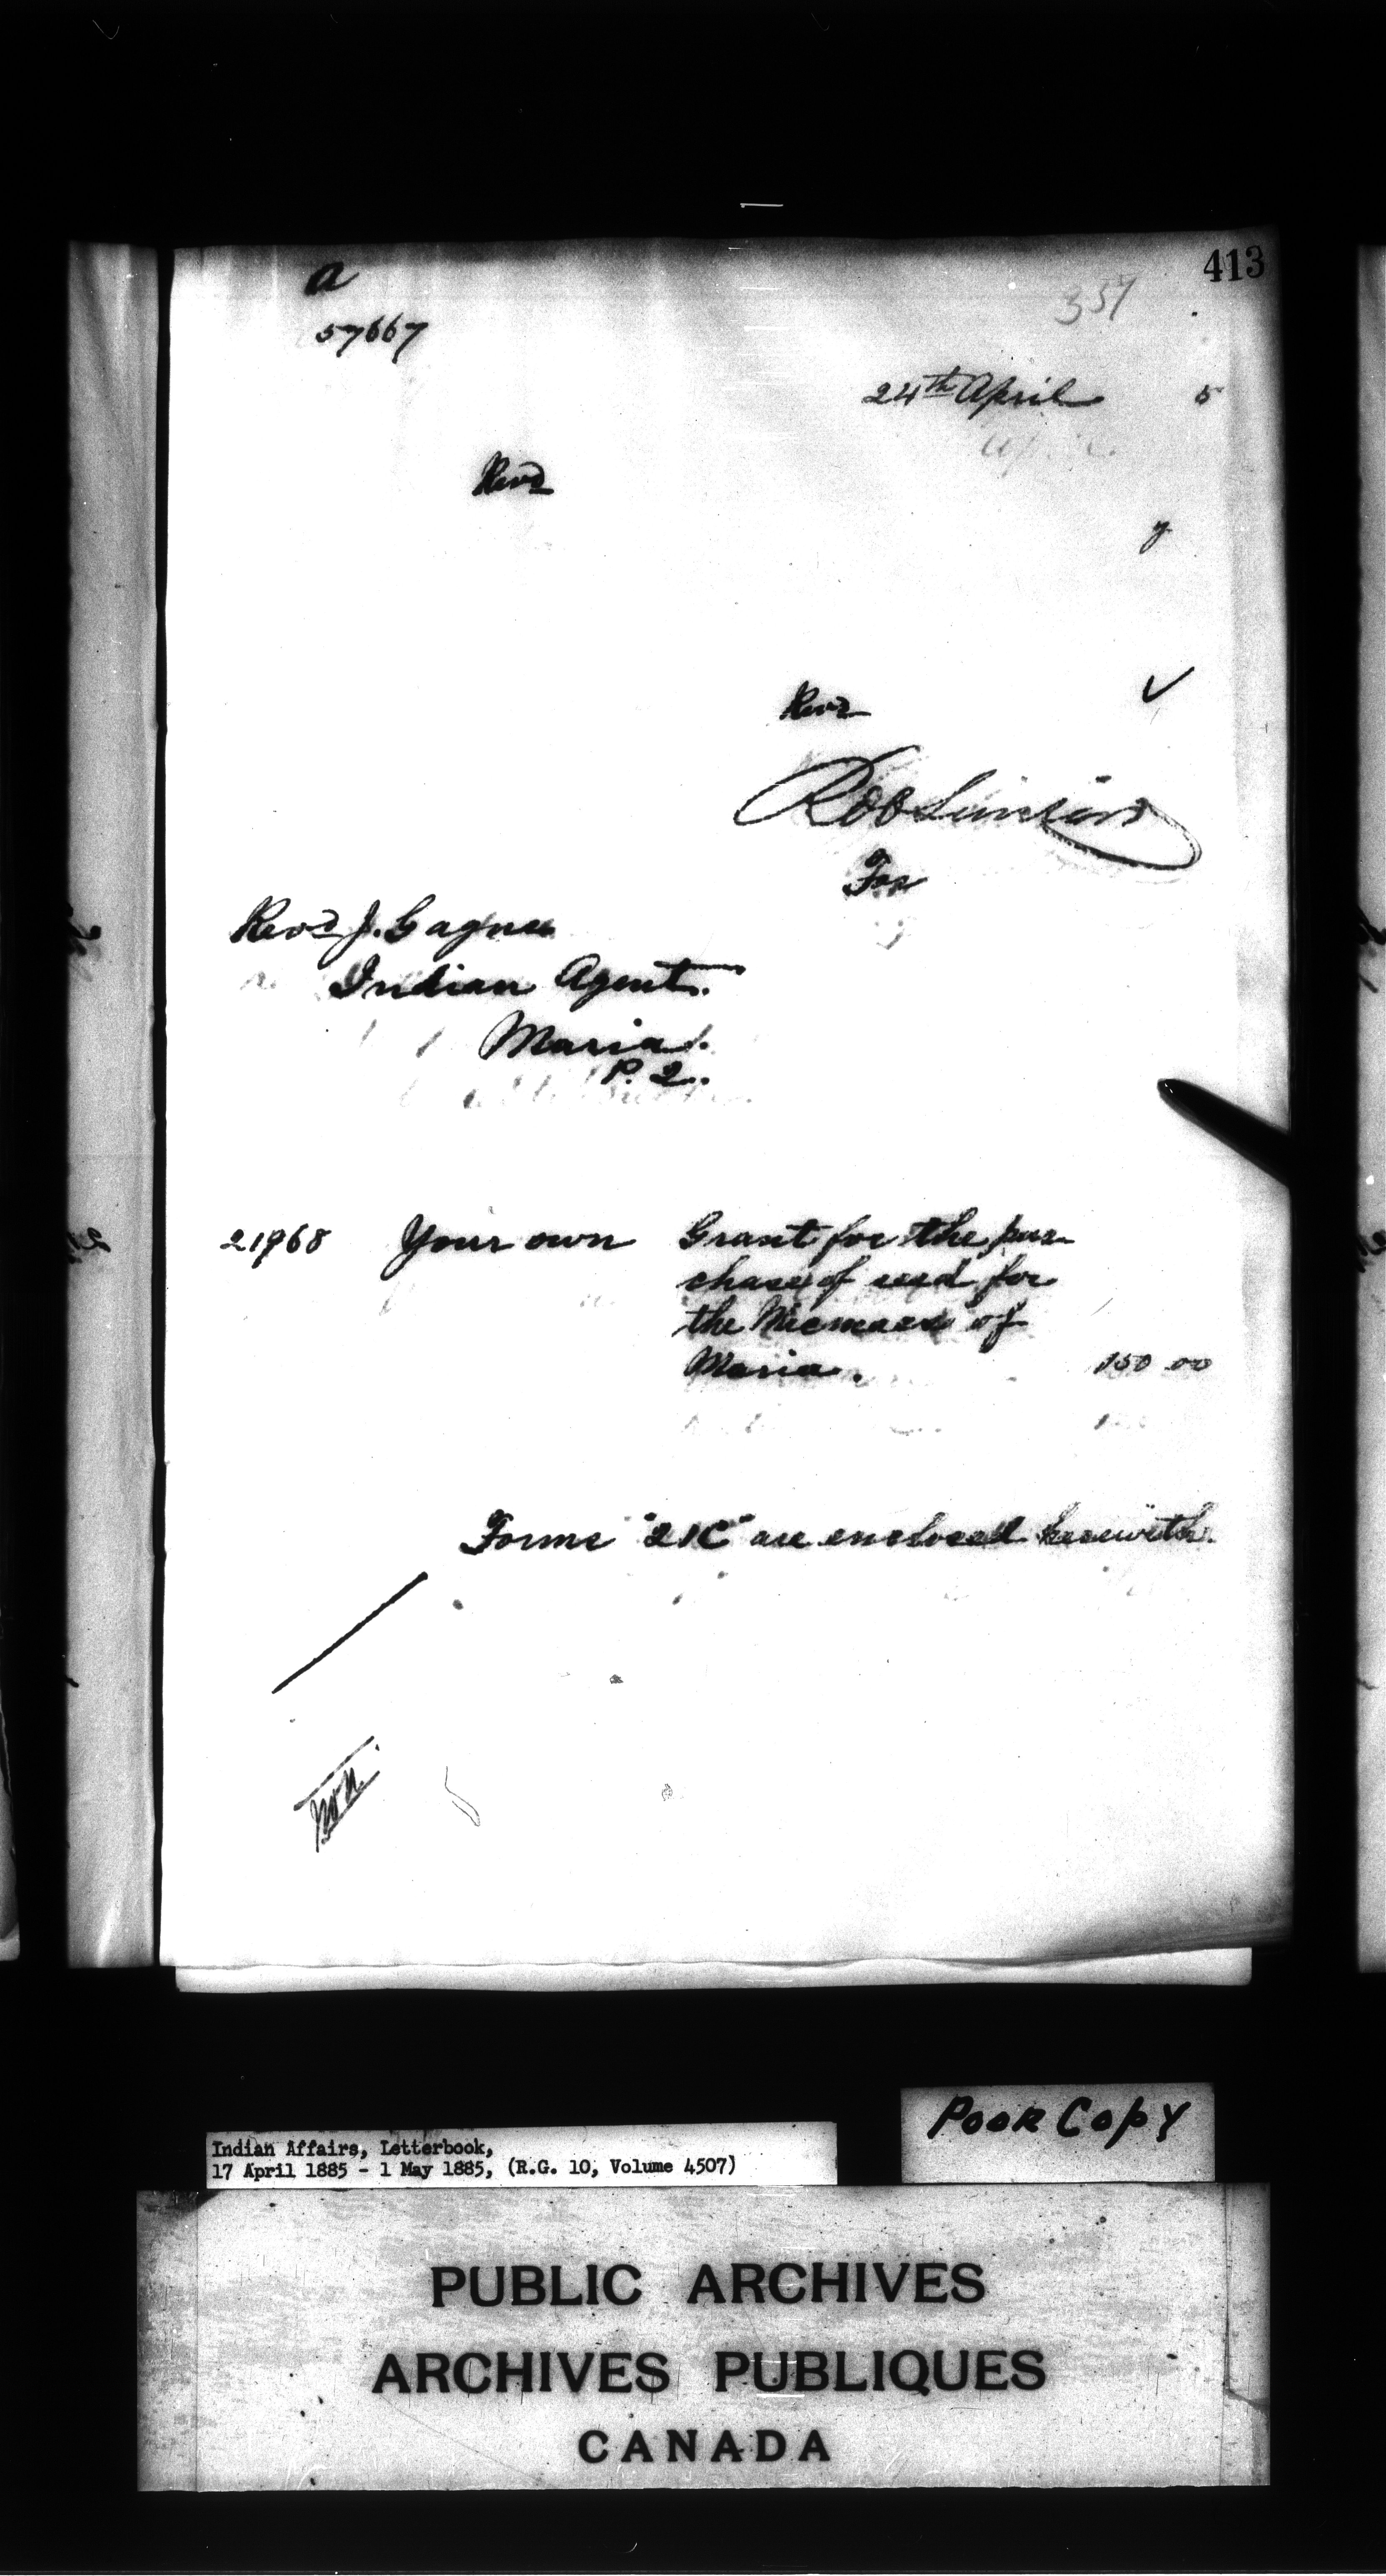 413
a
357
57667
24th April 5
Revd
y
Revd
Robt Sinclair
For
Revd J. Gagne
Indian Agent.
Maria.
P. Q.
21968 Your own Grant for the pur-
chase of seed for
the Micmacs of
Maria. 150 00
Forms "21C" are enclosed herewith.
Poor Copy
Indian Affairs, Letterbook,
17 April 1885 - 1 May 1885, (R.G. 10, Volume 4507)
PUBLIC ARCHIVES
ARCHIVES PUBLIQUES
CANADA